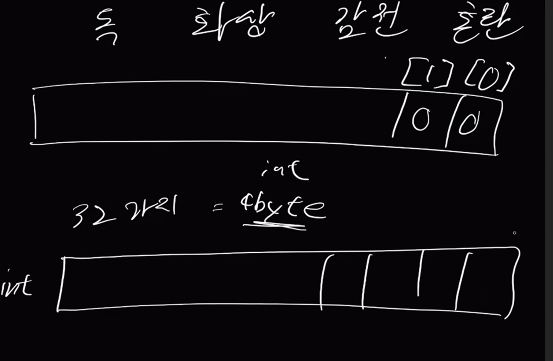 독 화상 감전 혼란
[1] [0]
0 0
int
32 가지 = 4byte
int